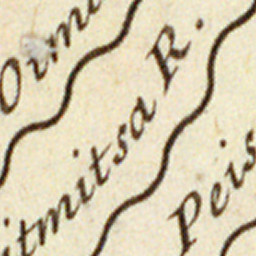 Oimi
itmitsa R.
Peis